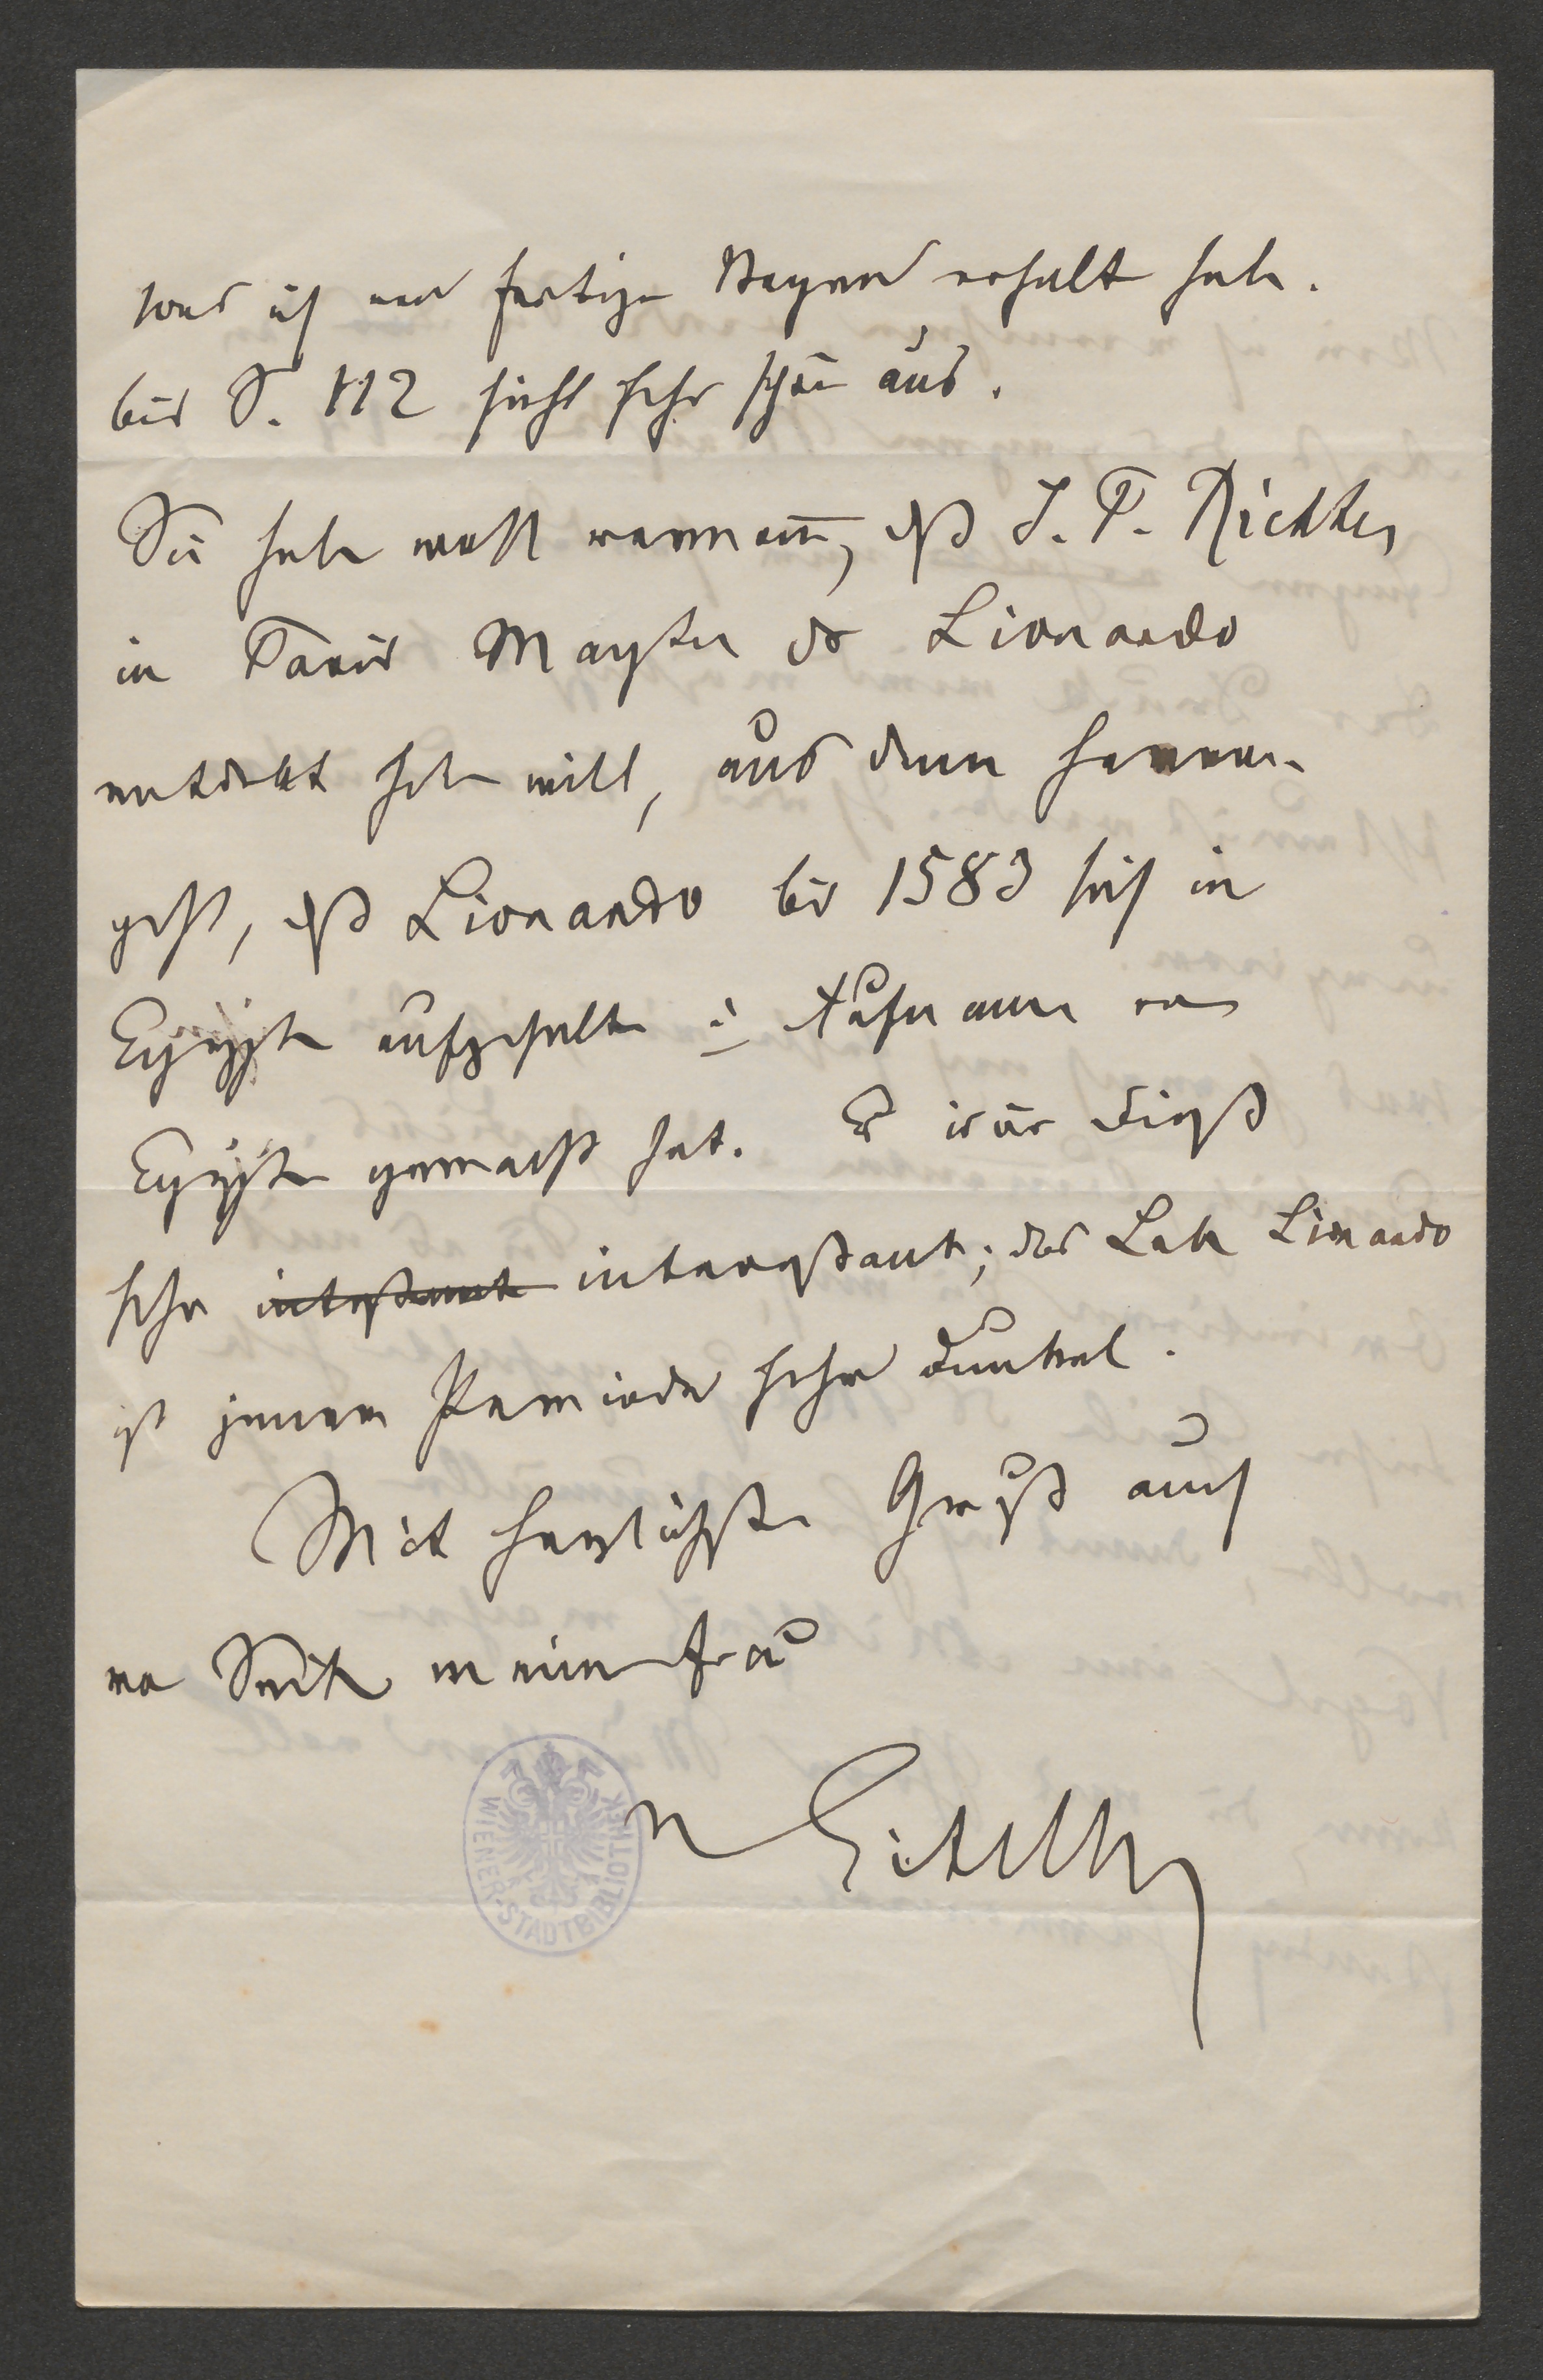 was ich an fertigen Bögen erhalten habe.
bis S. 112 sieht sehr schön aus.
Sie haben wohl vernommen, daß J. P. Richter
in Paris Mscpte des Lionardo
entdeckt haben will, aus denen hervor-
geht, daß Lionardo bis 1583 sich in
Egypten aufgehalten u Aufnamen von
Egypten gemacht hat. Es wäre dieß
sehr interessant; das Leben Lionardo
ist jener Periode sehr dunkel.
Mit herzlichsten Gruß auch
von Seite meiner Frau
v Eitelbg
WIENER-STADTBIBLIOTHEK